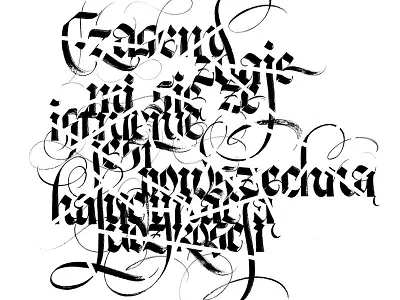 Czasem
zdaje
mi się że
istnienie
jest
powszechną
halucynacją
ludzkości